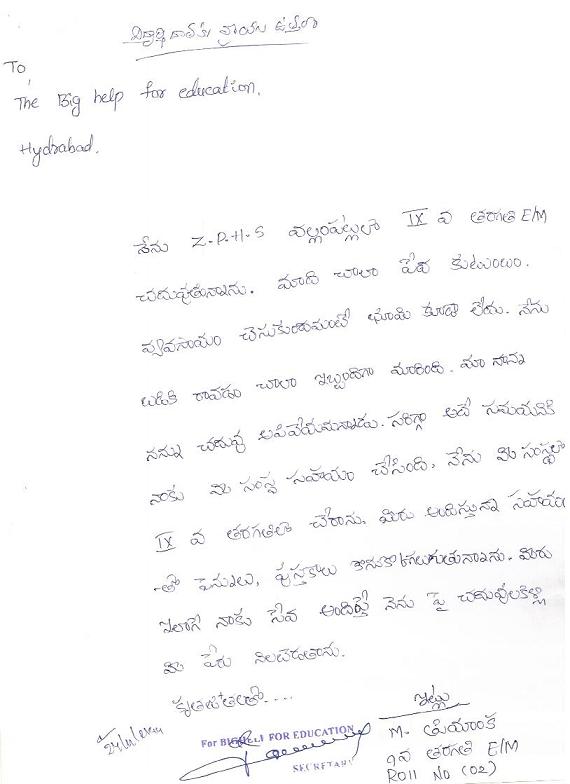 విద్యార్థి దాతకు వ్రాయు ఉత్తరం
To
The Big help for education,
Hydrabad.
నేను Z.P.H.S వల్లంపట్లలో IX వ తరగతి E/M
చదువుతున్నాను. మాది చాలా పేద కుటుంబం.
వ్యవసాయం చేసుకుందామంటే భూమి కూడా లేదు. నేను
బడికి రావడం చాలా ఇబ్బందిగా మారింది. మా నాన్న
నన్ను చదువు ఆపివేయమన్నాడు. సరిగ్గా అదే సమయానికి
నాకు మీ సంస్థ సహాయం చేసింది, నేను మీ సంస్థలో
IX వ తరగతిలో చేరాను, మీరు అందిస్తున్న సహాయం
-తో పెన్నులు, పుస్తకాలు కొనుకోగలుగుతున్నాను. మీరు
ఇలాగే నాకు సేవ అందిస్తే నేను పై చదువులకెళ్లి
మీ పేరు నిలబెడతాను.
కృతజ్ఞతలతో....
ఇట్లు
M. ప్రియాంక
9వ తరగతి E/M
Roll No (02)
For BIGHELP FOR EDUCATION
SECRETARY